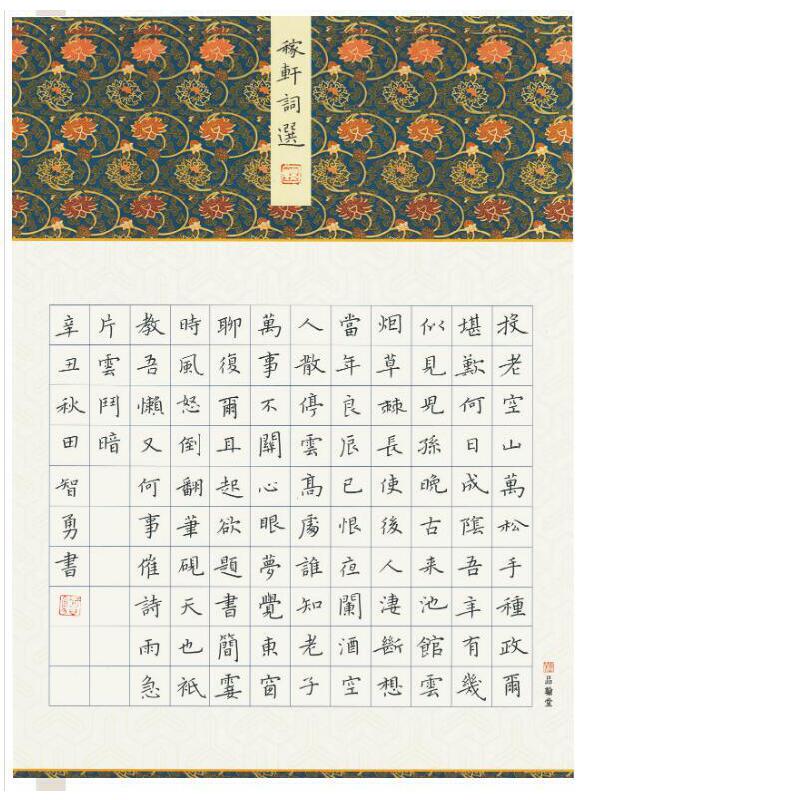 稼軒詞選
投老空山萬松手種政爾
堪歎何日成陰吾年有幾
似見兒孫晚古来池館雲
烟草棘長使後人淒斷想
當年良辰已恨夜闌酒空
人散停雲高處誰知老子
萬事不關心眼夢覺東窗
聊復爾耳起欲題書簡霎
時風怒倒翻筆硯天也衹
教吾懶又何事催詩雨急
片雲鬥暗
辛丑秋田智勇書
品翰堂